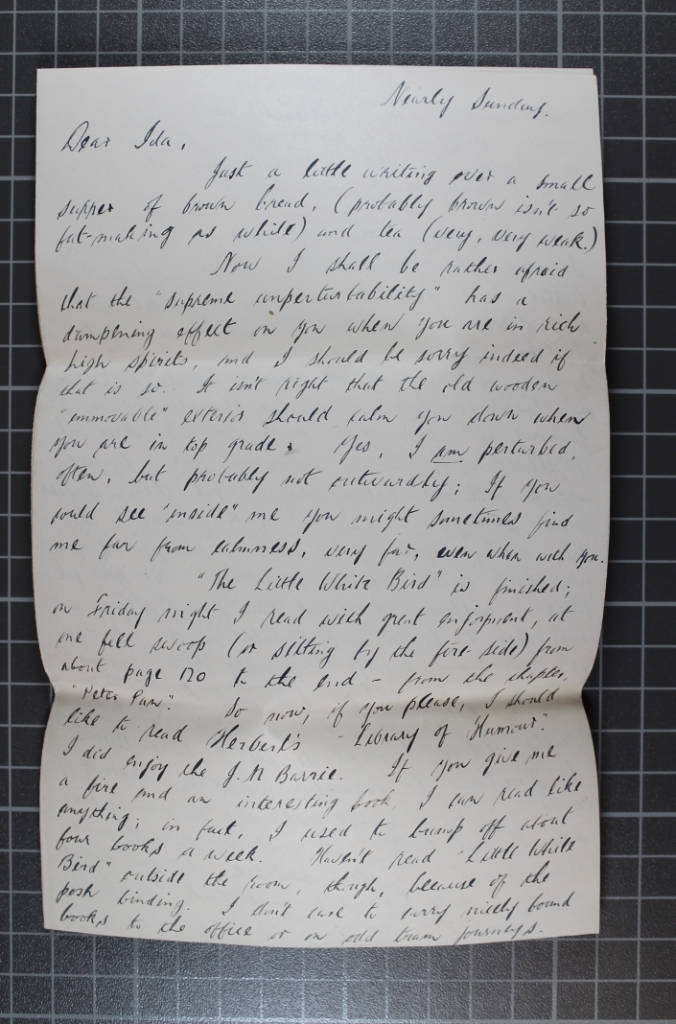 Nearly Sunday.
Dear Ida,
Just a little writing over a small
supper of brown bread, (probably brown isn't so
fat-making as white) and tea (very, very weak.)
Now I shall be rather afraid
that the "supreme unperturbability" has a
dampening effect on you when you are in rich
high spirits, and I should be sorry indeed if
that is so. It isn't right that the old wooden
"immovable" exterior should calm you down when
you are in top grade. Yes, I am perturbed,
often, but probably not outwardly; If you
could see "inside" me you might sometimes find
me far from calmness, very far, even when with you.
"The Little White Bird" is finished;
on Friday night I read with great enjoyment, at
one fell swoop (or sitting by the fire-side) from
about page 120 to the end - from the chapter,
"Peter Pan". So now, if you please, I should
like to read Herbert's "Library of Humour".
I did enjoy the J.M Barrie. If you give me
a fire and an interesting book, I can read like
anything; in fact, I used to bump off about
four books a week. Haven't read "Little White
Bird" outside the room, though, because of the
posh binding. I don't care to carry nicely bound
books to the office or on odd tram journeys.